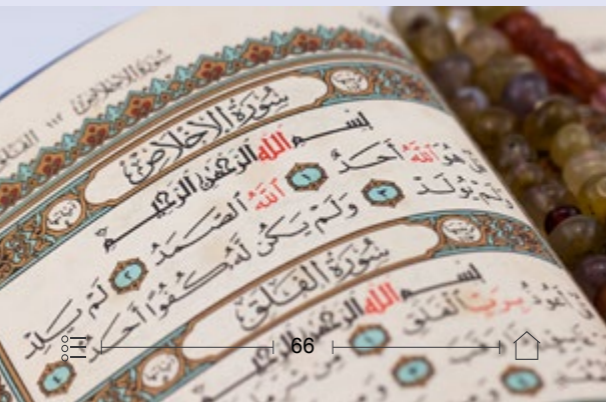 سُورَةُ الْإِخْلَاصِ ١١٢
سُورَةُ الْإِخْلَاصِ
بِسْمِ اللَّهِ الرَّحْمَٰنِ الرَّحِيمِ
قُلْ هُوَ اللَّهُ أَحَدٌ ١ اللَّهُ الصَّمَدُ ٢ لَمْ يَلِدْ
وَلَمْ يُولَدْ ٣ وَلَمْ يَكُن لَّهُ كُفُوًا أَحَدٌ ٤
سُورَةُ الْفَلَقِ
بِسْمِ اللَّهِ الرَّحْمَٰنِ الرَّحِيمِ
قُلْ أَعُوذُ بِرَبِّ الْفَلَقِ ١ مِن شَرِّ مَا
66